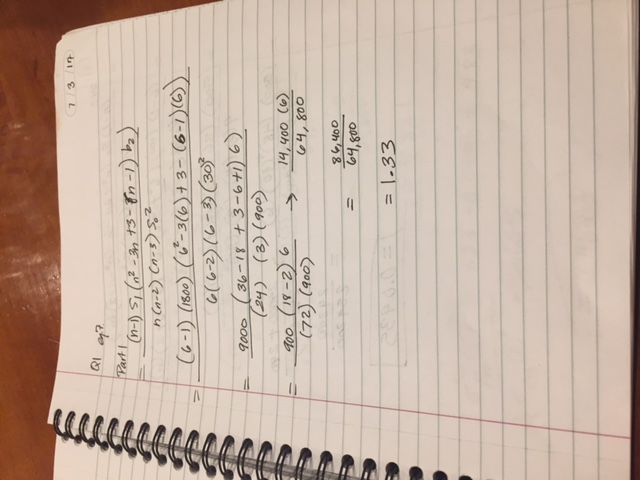 7/3/17
Q1 eq7
Part 1
= (n-1) S₁ (n² - 3n + 3 - (n-1) b₂) / n(n-2)(n-3) S₀²
= (6-1)(1800)(6² - 3(6) + 3 - (6-1)(6)) / 6(6-2)(6-3)(30)²
= 9000 (36 - 18 + 3 - 6 + 1) 6) / (24) (3) (900)
= 900 (18 - 2) 6 / (72) (900) → 14,400 (6) / 64,800
= 86,400 / 64,800
= 1.33